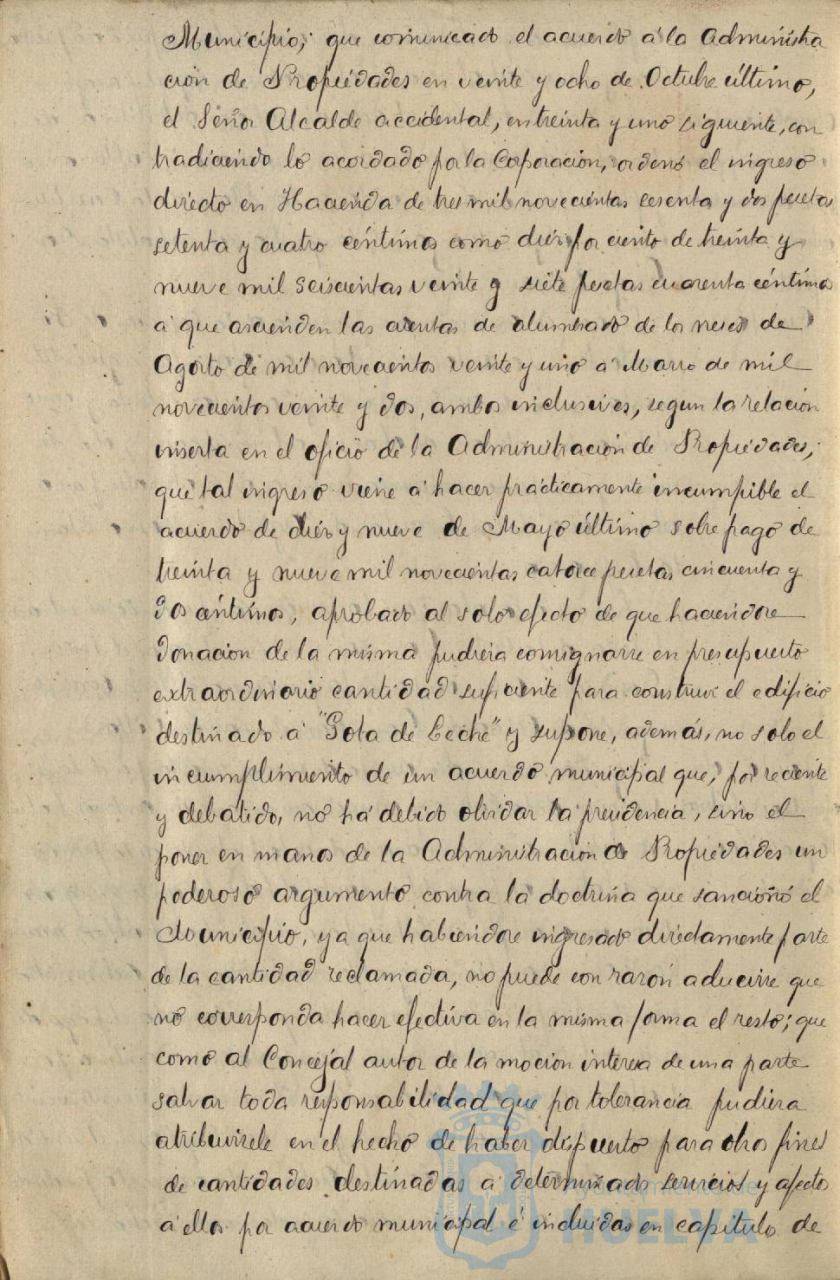 Municipio; que comunicado el acuerdo á la Administra
ción de Propiedades en veinte y ocho de Octubre último,
el Señor Alcalde accidental, en treinta y uno siguiente, con
tradiciendo lo acordado por la Corporación, ordenó el ingreso
directo en Hacienda de tres mil novecientas sesenta y dos pesetas
setenta y cuatro céntimos como diez por ciento de treinta y
nueve mil seiscientas veinte y siete pesetas cuarenta céntimos
á que ascienden las cuentas de alumbrado de los meses de
Agosto de mil novecientos veinte y uno á Marzo de mil
novecientos veinte y dos, ambos inclusives, segun la relación
inserta en el oficio de la Administración de Propiedades;
que tal ingreso viene á hacer prácticamente incumplible el
acuerdo de diez y nueve de Mayo último sobre pago de
treinta y nueve mil novecientas catorce pesetas cincuenta y
dos céntimos, aprobado al solo efecto de que haciendose
donación de la misma pudiera consignarse en presupuesto
extraordinario cantidad suficiente para construir el edificio
destinado á "Gota de Leche" y supone, además, no solo el
incumplimiento de un acuerdo municipal que, por reciente
y debatido, no há debido olvidar la presidencia, sino el
poner en manos de la Administración de Propiedades un
poderoso argumento contra la doctrina que sancionó el
Municipio, ya que habiendose ingresado directamente parte
de la cantidad reclamada, no puede con razón aducirse que
no corresponda hacer efectiva en la misma forma el resto; que
como al Concejal autor de la moción interesa de una parte
salvar toda responsabilidad que por tolerancia pudiera
atribuirsele en el hecho de haber dispuesto para otros fines
de cantidades destinadas á determinado servicios y afectos
á ellos por acuerdo municipal é incluidas en capítulo de
Ayuntamiento de
HUELVA